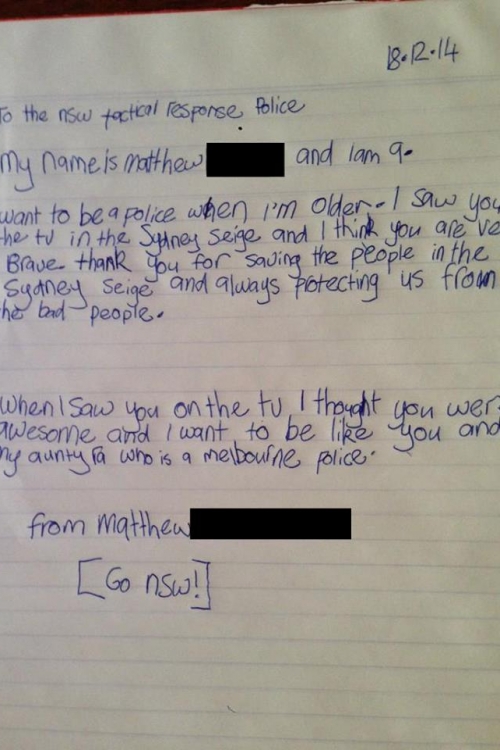 18.12.14
To the nsw tactical response Police
My Name is matthew and Iam 9.
want to be a police when I'm older. I saw you
the tv in the Sydney Seige and I think you are ve
Brave thank you for saving the people in the
Sydney Seige and always protecting us from
he bad people.
when I saw you on the tv I thought you wer
awesome and I want to be like you and
my aunty who is a melbourne police.
from matthew
[Go nsw!]